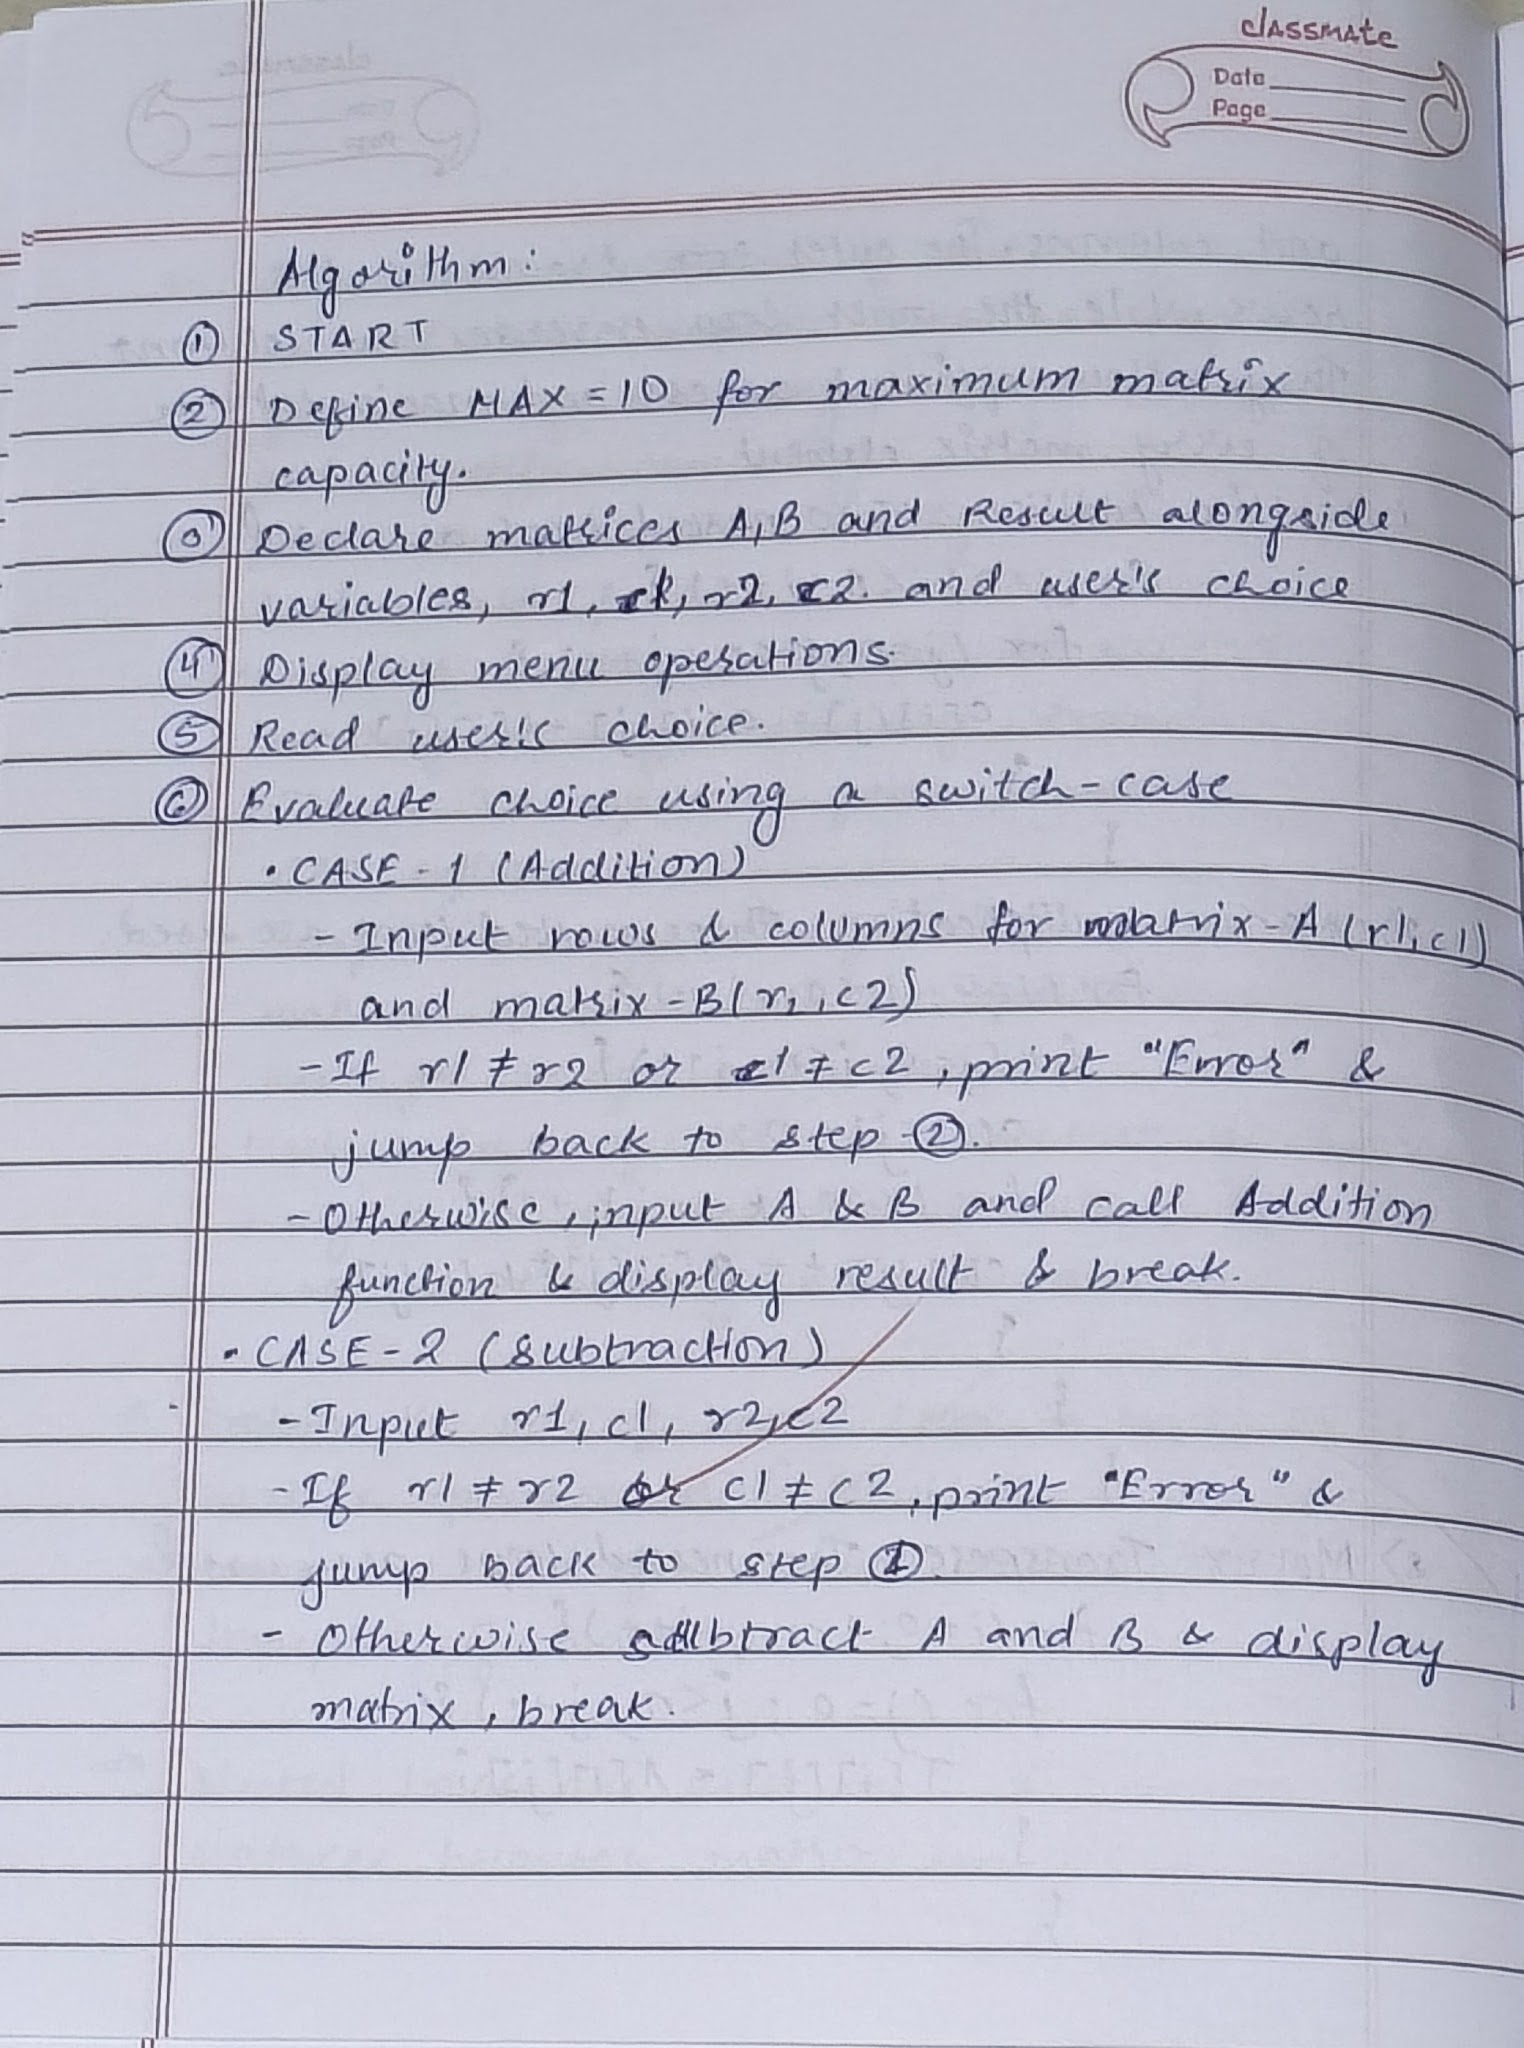 classmate
Date
Page
Algorithm:
① START
② Define MAX = 10 for maximum matrix
capacity.
③ Declare matrices A, B and Result alongside
variables, r1, c1, r2, c2. and user's choice
④ Display menu operations.
⑤ Read user's choice.
⑥ Evaluate choice using a switch-case
• CASE - 1 (Addition)
- Input rows & columns for matrix - A (r1, c1)
and matrix - B (r2, c2)
- If r1 ≠ r2 or c1 ≠ c2, print "Error" &
jump back to step ②.
- Otherwise, input A & B and call Addition
function & display result & break.
• CASE - 2 (Subtraction)
- Input r1, c1, r2, c2
- If r1 ≠ r2 or c1 ≠ c2, print "Error" &
jump back to step
- Otherwise subtract A and B & display
matrix, break.